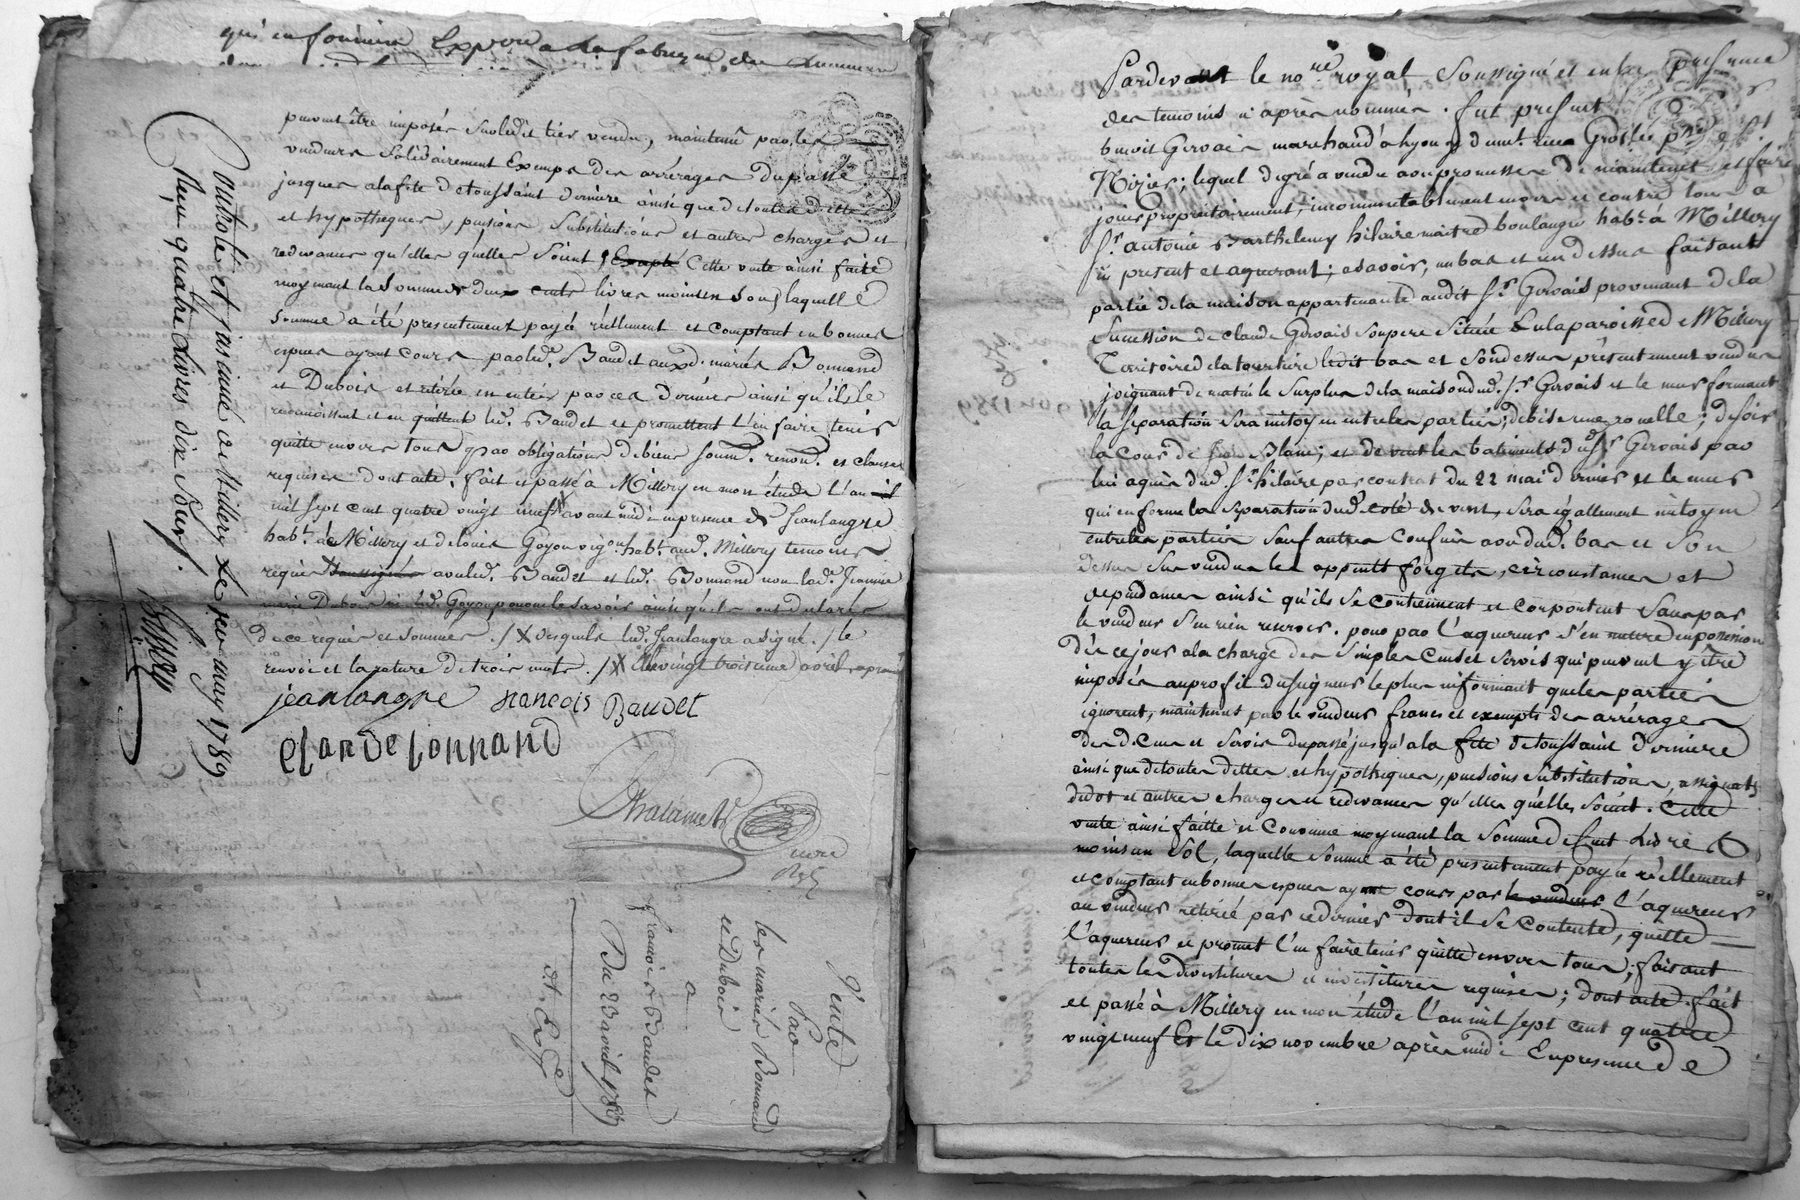 qui en forment Expire a la fabrique de
peuvent être imposés sur ledit tier vendu, maintenu par les
vendeurs solidairement Exemps des arrérages du passé
jusques a la fête de toussaint derniere ainsi que de toutes dettes
et hypotheques, pensions, substitutions et autres charges et
redevances qu'elles quelles soient Excepté Cette vente ainsi faite
moyenant la Somme de deux cents livres moins un sou, laquelle
somme a été presentement payée réellement et comptant en bonnes
espèces ayant cours par led. Baudet auxd. mariés Bonnand
et Dubois et retirée en entier par ces derniers ainsi qu'ils le
reconoissent et en quittent led. Baudet et promettent l'en faire tenir
quitte envers tous par obligations de biens soum. renon. et clauses
requises dont acte. fait et passé à Millery en mon étude l'an mil
mil sept cent quatre vingt neuf X avant midi en presence de Jean langre
habt. à Millery et de louis Goyon vigon. habt. aud. Millery temoins
requis soussignés avec led. Baudet et led. Bonnand non lad. Jeanne
marie Dubois ni led. Goyon pour ne le savoir ainsi qu'ils ont declaré
de ce requis et sommés. /X desquels led. Jean langre a signé. / le
renvoi et la rature de trois mots. /X le vingt troisieme avril apres
jean langre francois Baudet
Claude bonnand
Chatainet
Controlé et insinué a Millery le sept may 1789
Reçu quatre livres dix sous.
Vente
Par
les mariés Bonnand
et Dubois
a
francois Baudet
Du 23 avril 1789
Pardevant le nore. royal soussigné et en la presence
des temoins ci après nommés. fut present Sr.
benoit Gervais marchand à lyon y demt. rue Groslée psse. de St.
Nizier; lequel de gré a vendu avec promesse de maintenir et faire
jouir propriétairement, incommutablement envers et contre tous a
Sr. antoine Barthelemy hilaire maitre boulanger habt. à Millery
ci present et aquerant; a savoir, un bas et un dessus faisant
partie de la maison appartenante audit Sr. Gervais provenant de la
Succession de claude Gervais son pere Située en la paroisse de Millery
Territoire de la tourtiere ledit bas et son dessus présentement vendus
joignant de matin le surplus de la maison dud. Sr. Gervais et le mur formant
la separation sera mitoyen entre les parties; de bise rue ruelle; de soir
la cour de Blanc; et de vent les batiments dud. Sr. Gervais par
lui aquis dud. Sr. hilaire par contrat du 22 mai dernier et le mur
qui en forme la Separation dud. coté de vent, sera également mitoyen
entre les parties sauf autres confins avec dud. bas et son
dessus sus vendus les appents forgets, circonstances et
dependances ainsi qu'ils se contiennent et comportent sans par
le vendeur s'en rien reserver. pour par l'aquereur s'en mettre en possession
dès ce jour a la charge des simples cens et servis qui peuvent y être
imposés au profit du seigneur le plus informant que les parties
ignorent, maintenus par le vendeur francs et exempts des arrérages
desd. Cens et servis du passé jusqu'a la fête de toussaint derniere
ainsi que de toutes dettes et hypotheques, pensions substitutions, assignats
de dot et autres charges et redevances qu'elles quelles soient. Cette
vente ainsi faite et Convenue moyenant la Somme de Cent livres
moins un Sol, laquelle somme a été presentement payée réellement
et comptant en bonnes especes ayant cours par le vendeur l'aquereur
au vendeur retirée par ce dernier dont il se contente, quitte
l'aquereur et promet l'en faire tenir quitte envers tous, faisant
toutes les devestitures et investitures requises; dont acte. fait
et passé à Millery en mon étude l'an mil sept cent quatre
vingt neuf Et le dix novembre après midi En presence de